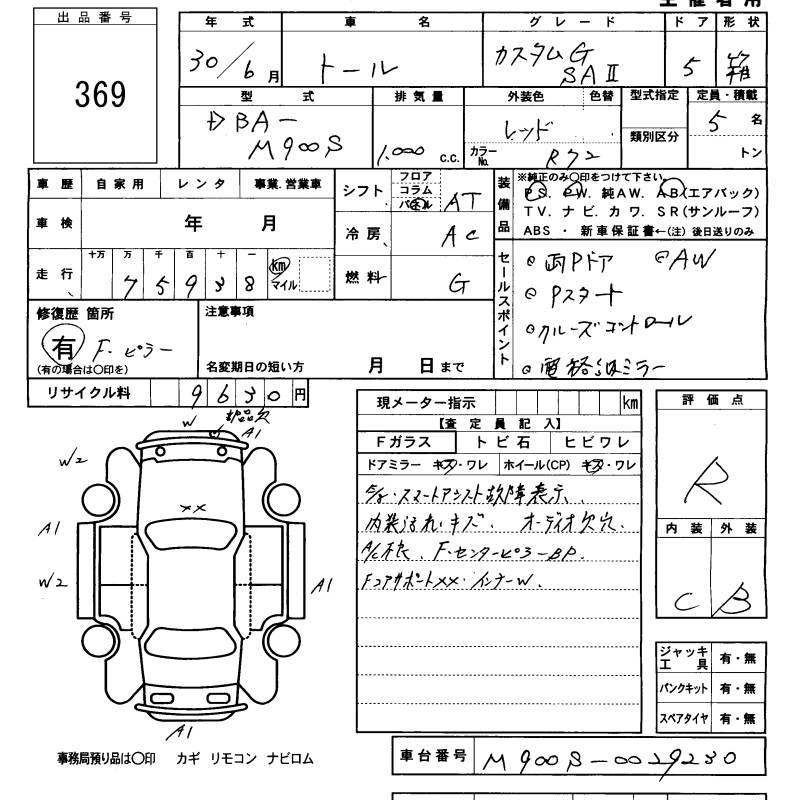 出品番号
369
年式 車名 グレード ドア 形状
30/6月 トール カスタムG SAⅡ 5 箱
型式 排気量 外装色 色替 型式指定 定員・積載
DBA-M900S 1,000 c.c. レッド カラーNo. R72 類別区分 5名 トン
車歴 自家用 レンタ 事業.営業車
車検 年 月
走行 十万 万 千 百 十 一
75938 km マイル
シフト フロア コラム パネル AT
冷房 AC
燃料 G
装備品
※純正のみ○印をつけて下さい。
PS. PW. 純AW. AB(エアバック)
TV. ナビ. カワ. SR(サンルーフ)
ABS ・ 新車保証書←(注) 後日送りのみ
セールスポイント
両Pドア AW
Pスタート
クルーズコントロール
電格ミラー
修復歴 箇所
有 F.ピラー
(有の場合は○印を)
注意事項
名変期日の短い方 月 日まで
リサイクル料 9630円
現メーター指示 km
【査定員記入】
Fガラス トビ石 ヒビワレ
ドアミラー キズ・ワレ ホイール(CP) キズ・ワレ
スマートアシスト故障表示
内装汚れ・キズ. オーディオ欠穴.
A/C不良. F.センターピラーBP.
FコアサポートXX・インナーW.
評価点
R
内装 外装
C B
ジャッキ工具 有・無
パンクキット 有・無
スペアタイヤ 有・無
W
A1
W2
XX
A1
W2
A1
A1
事務局預り品は○印 カギ リモコン ナビロム
車台番号 M900S-0029230